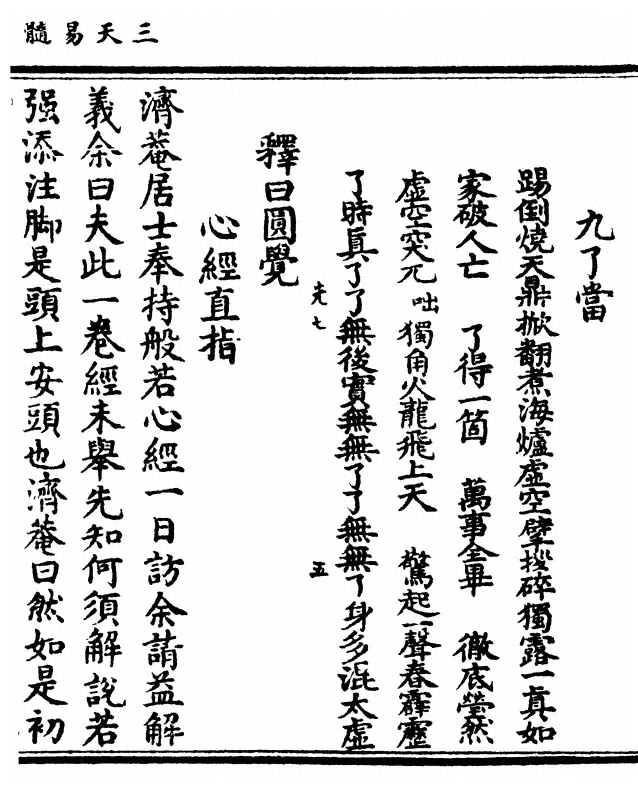 三天易髓
九了當
踢倒燒天鼎掀翻煮海爐虛空擘捘碎獨露一真如
家破人亡 了得一箇 萬事全畢 徹底瑩然
虛空突兀 咄 獨角火龍飛上天 驚起一聲春霹靂
了時真了了無後實無無了了無無了身多混太虛
光七
五
釋曰圓覺
心經直指
濟菴居士奉持般若心經一日訪余請益解
義余曰夫此一卷經未舉先知何須解說若
强添注脚是頭上安頭也濟菴曰然如是初